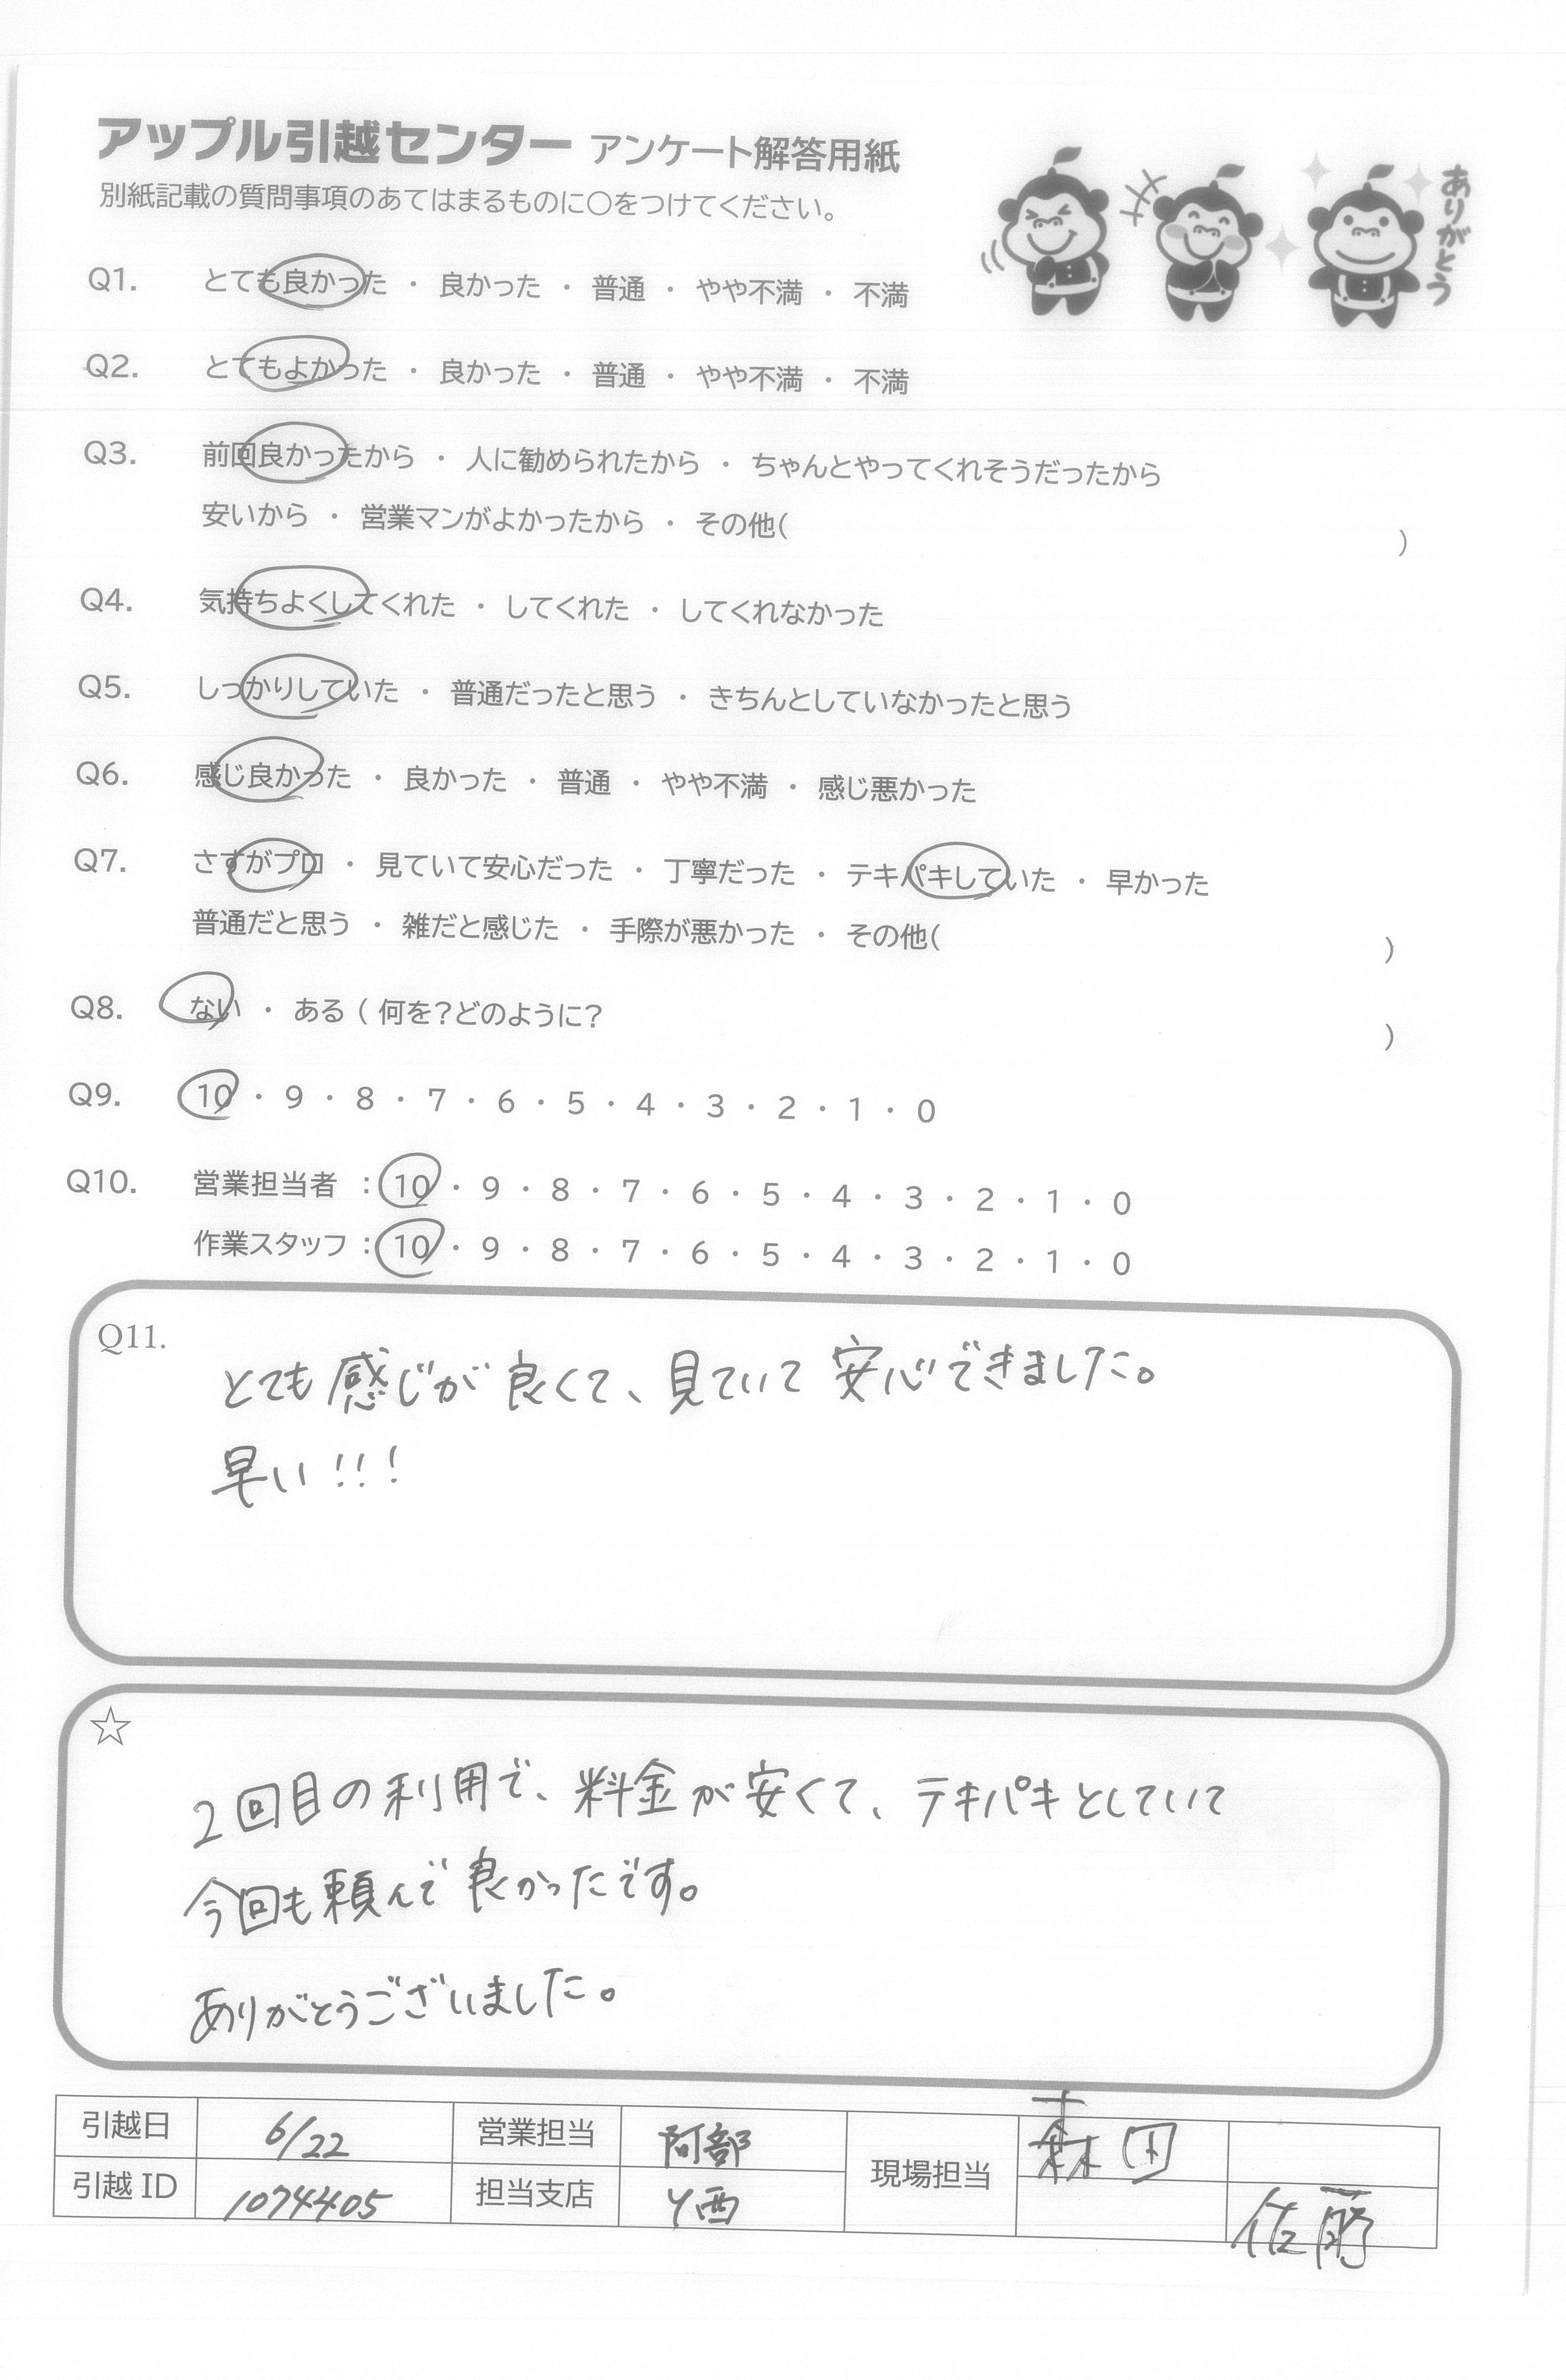 アップル引越センター アンケート解答用紙
別紙記載の質問事項のあてはまるものに○をつけてください。
ありがとう
Q1. とても良かった ・ 良かった ・ 普通 ・ やや不満 ・ 不満
Q2. とてもよかった ・ 良かった ・ 普通 ・ やや不満 ・ 不満
Q3. 前回良かったから ・ 人に勧められたから ・ ちゃんとやってくれそうだったから
安いから ・ 営業マンがよかったから ・ その他( )
Q4. 気持ちよくしてくれた ・ してくれた ・ してくれなかった
Q5. しっかりしていた ・ 普通だったと思う ・ きちんとしていなかったと思う
Q6. 感じ良かった ・ 良かった ・ 普通 ・ やや不満 ・ 感じ悪かった
Q7. さすがプロ ・ 見ていて安心だった ・ 丁寧だった ・ テキパキしていた ・ 早かった
普通だと思う ・ 雑だと感じた ・ 手際が悪かった ・ その他( )
Q8. ない ・ ある ( 何を?どのように? )
Q9. 10 ・ 9 ・ 8 ・ 7 ・ 6 ・ 5 ・ 4 ・ 3 ・ 2 ・ 1 ・ 0
Q10. 営業担当者 : 10 ・ 9 ・ 8 ・ 7 ・ 6 ・ 5 ・ 4 ・ 3 ・ 2 ・ 1 ・ 0
作業スタッフ : 10 ・ 9 ・ 8 ・ 7 ・ 6 ・ 5 ・ 4 ・ 3 ・ 2 ・ 1 ・ 0
Q11.
とても感じが良くて、見ていて安心できました。
早い!!!
☆
2回目の利用で、料金が安くて、テキパキとしていて
今回も頼んで良かったです。
ありがとうございました。
引越日 6/22 営業担当 阿部 現場担当 森田
引越ID 1074405 担当支店 Y西 佐藤